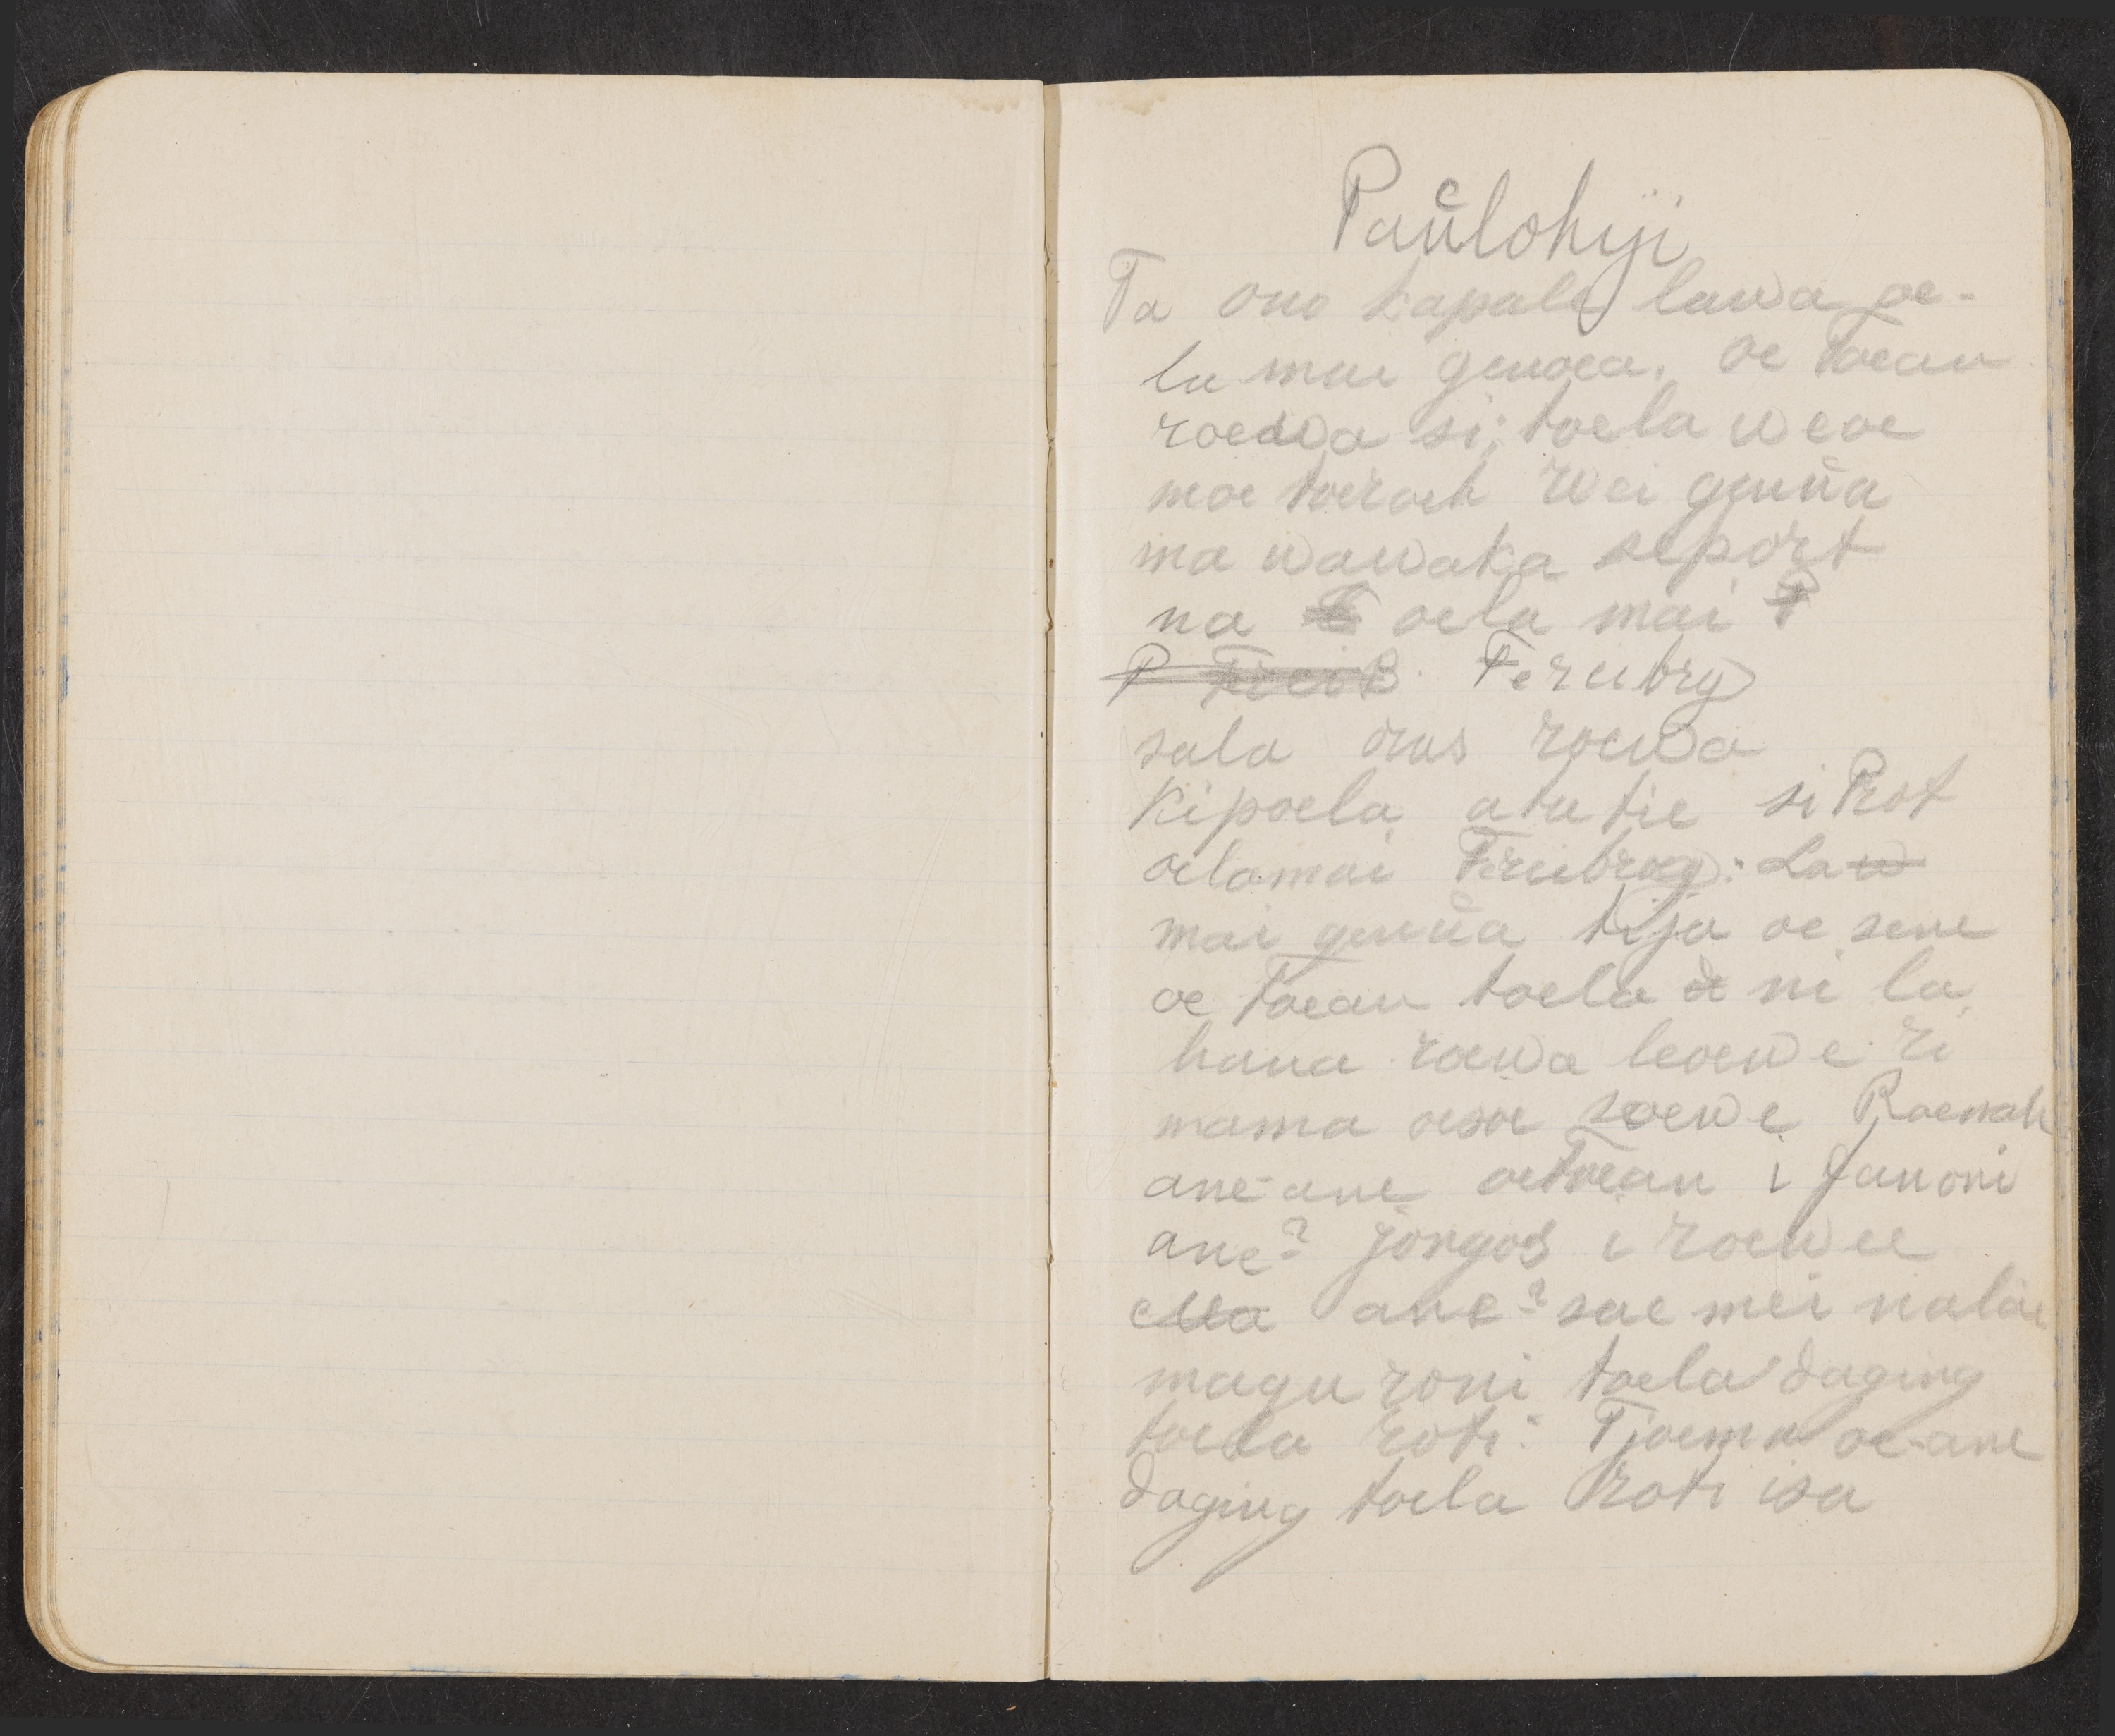 Paŭlohiji
Ta ono kapale lawa oe-
la mai genoea. Oe Toean
roewa si: toela weoe
moe toeroeh wei genŭa
ma wawaka seport
na oela mai
P Freib. Freibrg
sala oras roewa
Kipoela atu tie si Rot
oelamai Freibrog: La
mai genŭa tija oe sene
oe Toean toela ni la
hana roewa leoewe ri
mama oesoe soewe Roemah
ane-ane oe Toean i fanoni
ane? jorgos i roewee
ella ane? sae mei nalai
maqu roni toela daging
toela roti: Tjoema oe-ane
daging toela Roti isa